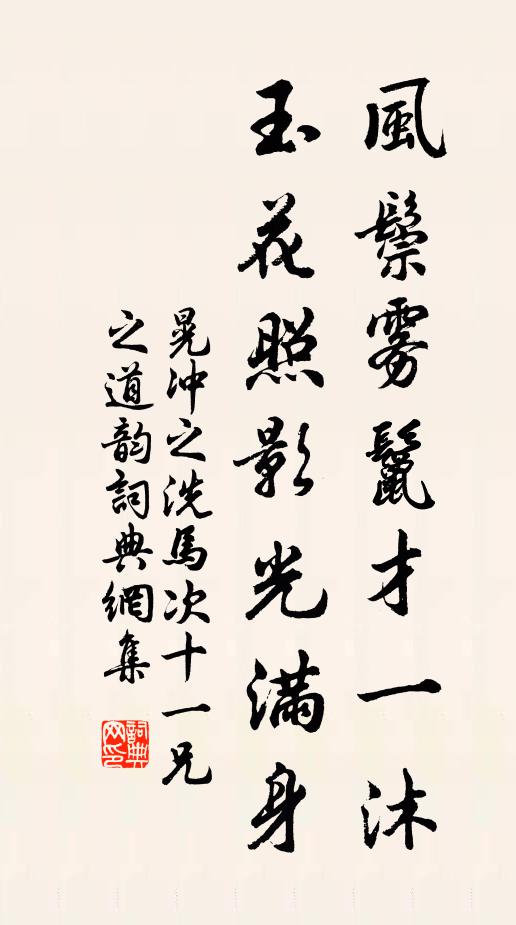 風鬃雾鬣才一沐
玉花照影光滿身
晃冲之洗馬次十一兄
之道韵詞典網集
詞典网印